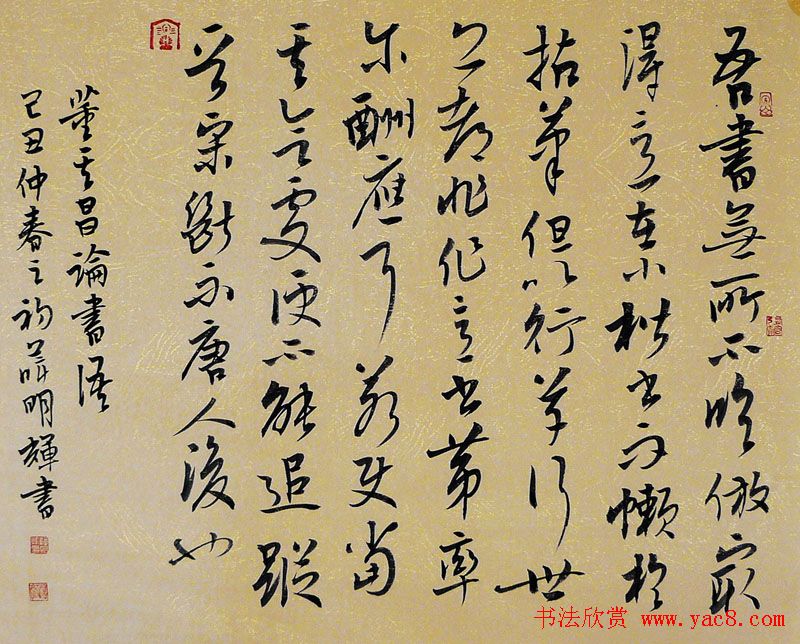 吾書無所不臨倣最
得意在小楷書而懶於
拈筆但以行草行世
亦都非作意書第率
尔酬應耳若使當
其合處便不能追蹤
晉宋斷不唐人後也
董其昌論書語
己丑仲春之初明輝書
书法欣赏 www.yac8.com